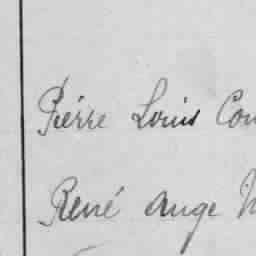 Pierre Louis
René Ange